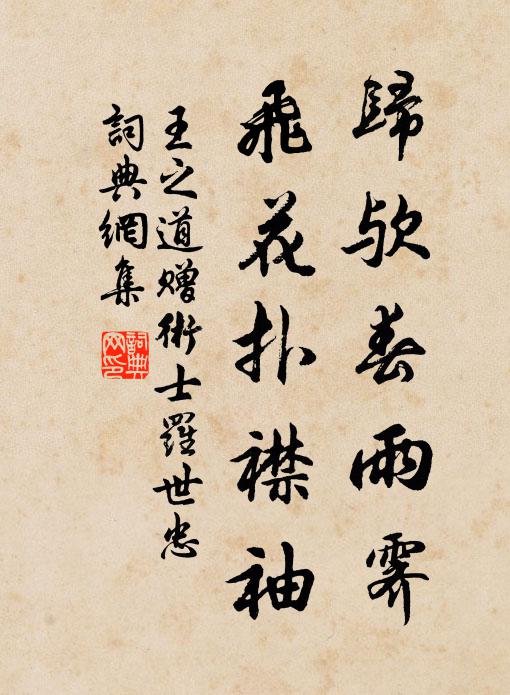 歸欤春雨霽
飛花扑襟袖
王之道贈術士羅世忠
詞典網集
詞典
网印